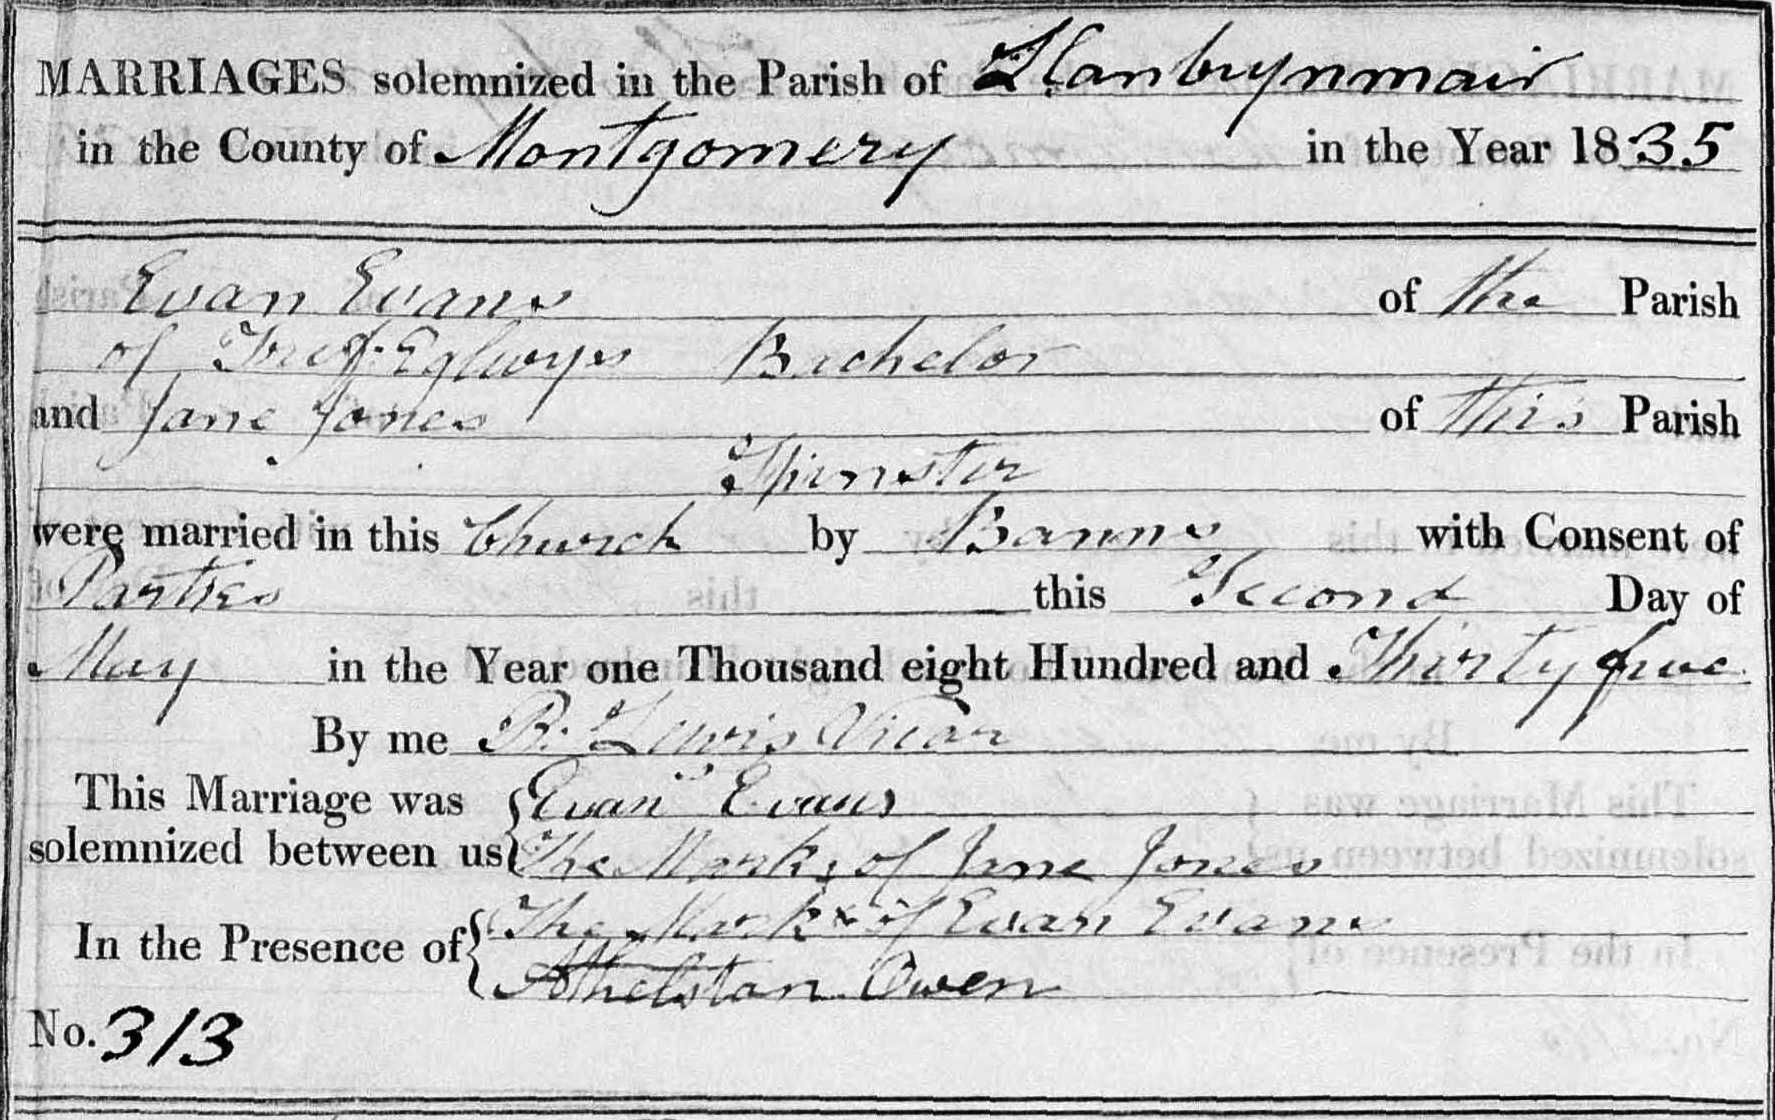 MARRIAGES solemnized in the Parish of Llanbrynmair
in the County of Montgomery in the Year 1835
Evan Evans of the Parish
of Tref Eglwys Bachelor
and Jane Jones of this Parish
Spinster
were married in this Church by Banns with Consent of
Parties this Second Day of
May in the Year one Thousand eight Hundred and Thirty five
By me R. Lewis Vicar
This Marriage was { Evan Evans
solemnized between us { The Mark x of Jane Jones
In the Presence of { The Mark x of Evan Evans
Athelstan Owen
No. 313